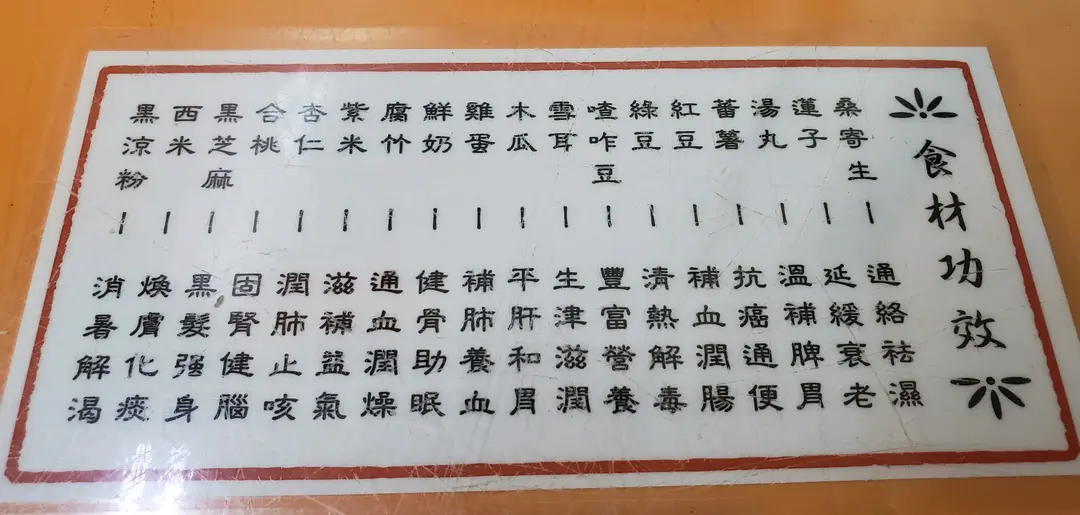 食材功效
桑寄生｜通絡祛濕
蓮子｜延緩衰老
湯丸｜溫補脾胃
蕃薯｜抗癌通便
紅豆｜補血潤腸
綠豆｜清熱解毒
喳咋豆｜豐富營養
雪耳｜生津滋潤
木瓜｜平肝和胃
雞蛋｜補肺養血
鮮奶｜健骨助眠
腐竹｜通血潤燥
紫米｜滋補益氣
杏仁｜潤肺止咳
合桃｜固腎健腦
黑芝麻｜黑髮強身
西米｜煥膚化痰
黑涼粉｜消暑解渴